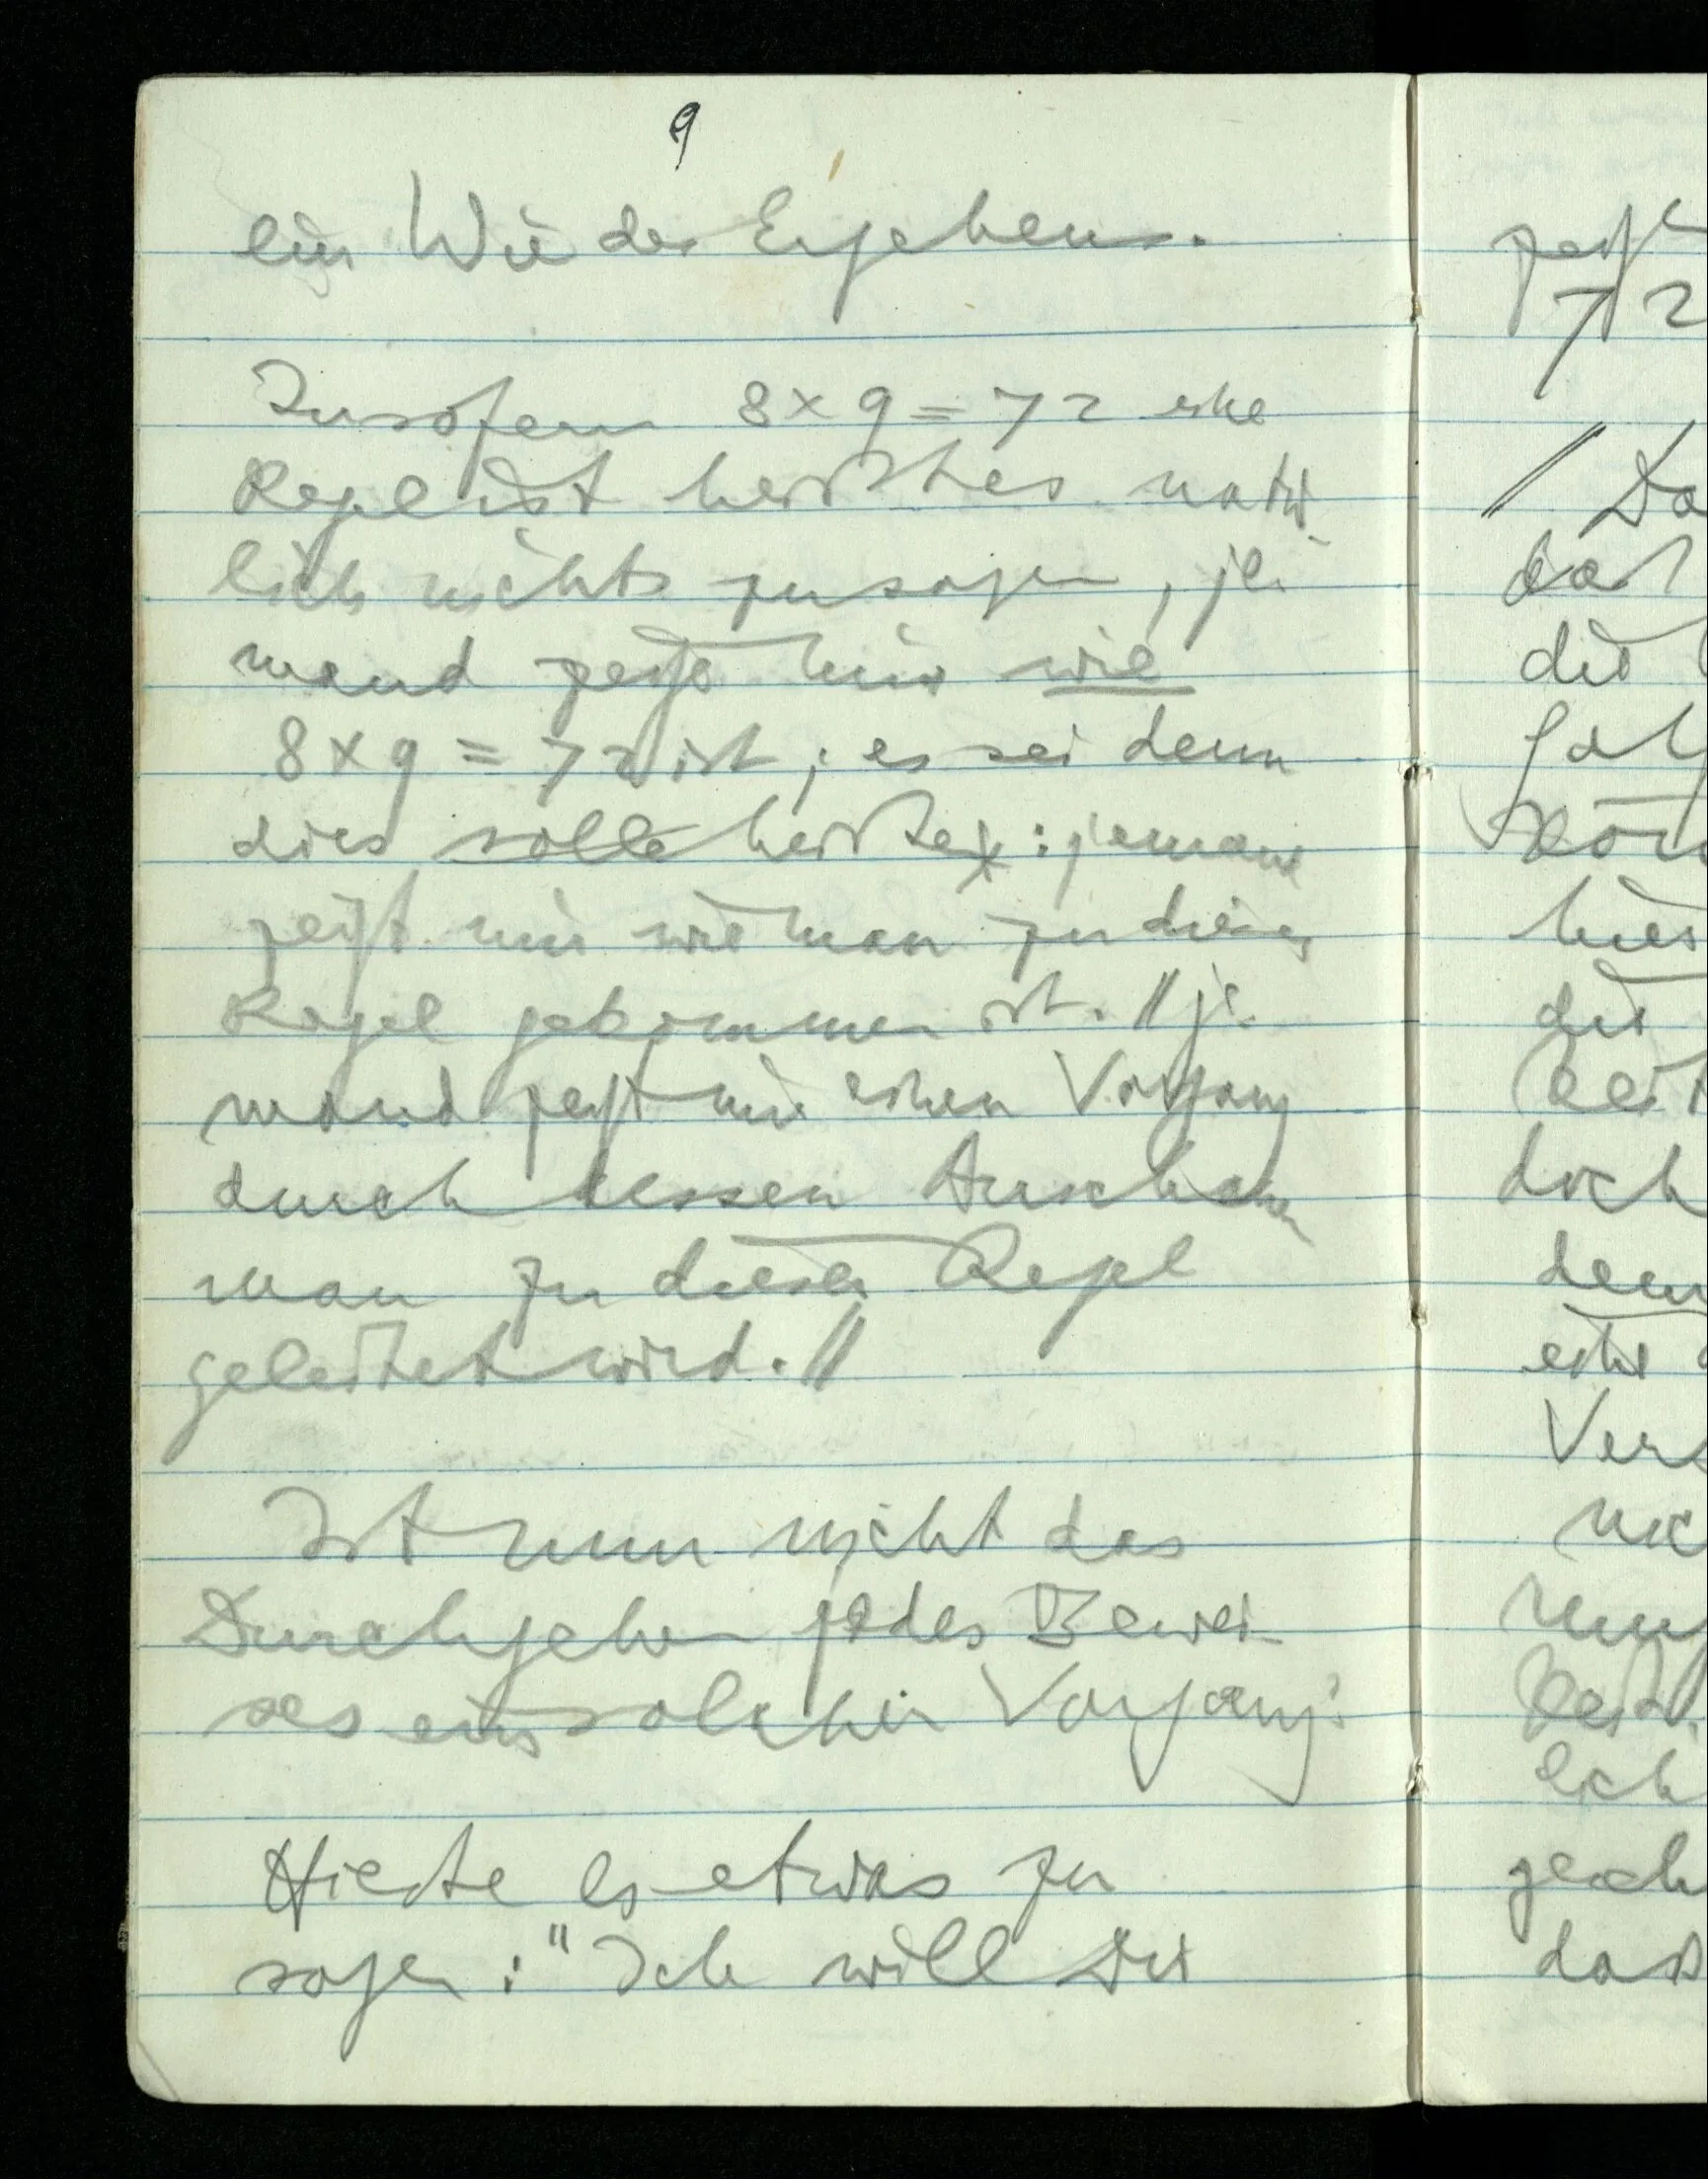 9
ein Wie des Ergebens.
Insofern 8 × 9 = 72 eine
Regel ist heißt es natür-
lich nichts zu sagen, je-
mand zeige mir wie
8 × 9 = 72 ist; es sei denn
dies solle heißen: jemand
zeigt mir wie man zu dieser
Regel gekommen ist. // je-
mand zeigt mir einen Vorgang
durch dessen Anschauen
man zu dieser Regel
geleitet wird. //
Ist nun nicht das
Durchgehen jedes Bewei-
ses ein solcher Vorgang?
Hieße es etwas zu
sagen: "Ich will Dir
zeigt
72
// Da
die
doch
dem
eine
Vers
daß